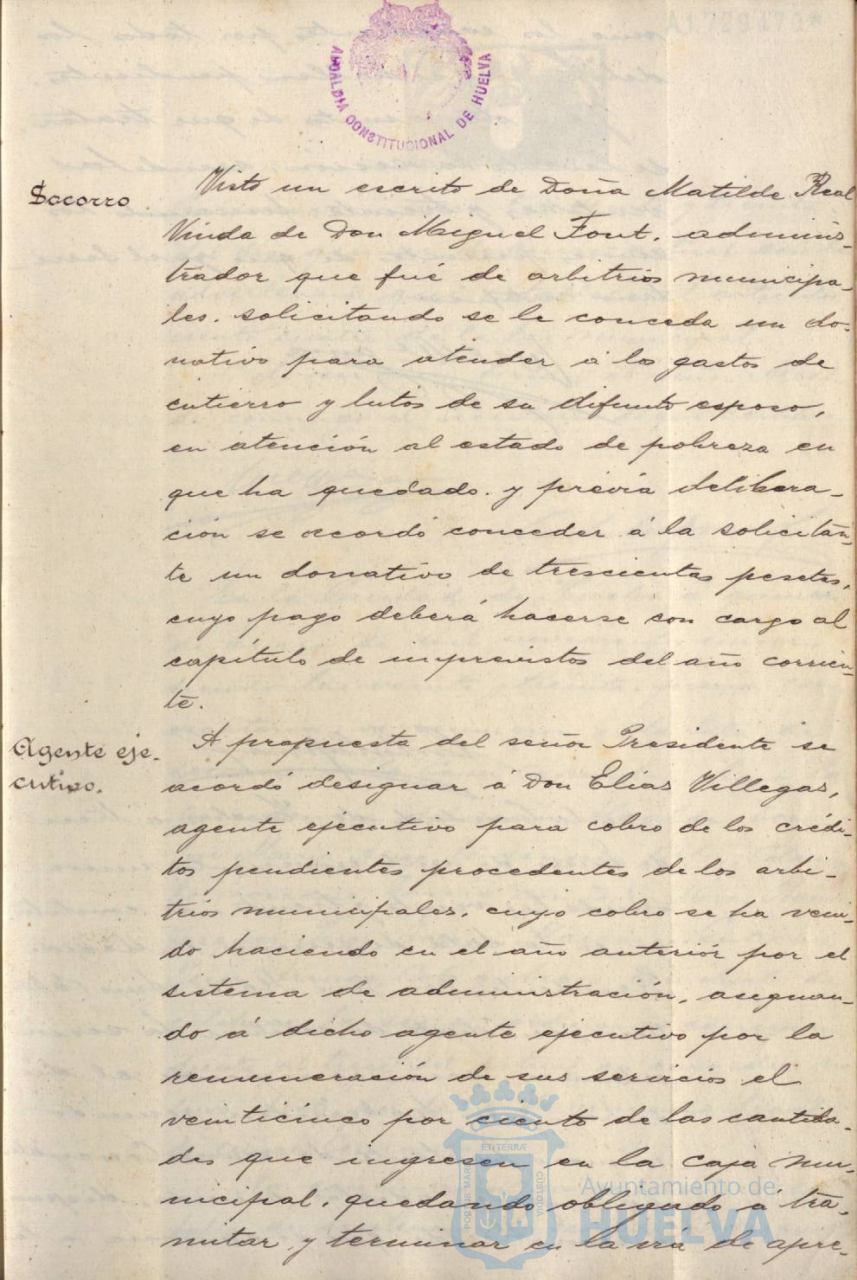 A1.729.470*
ALCALDIA CONSTITUCIONAL DE HUELVA
Socorro
Visto un escrito de Doña Matilde Real
Viuda de Don Miguel Font, adminis-
trador que fué de arbitrios municipa-
les, solicitando se le conceda un do-
nativo para atender á los gastos de
entierro y lutos de su difunto esposo,
en atención al estado de pobreza en
que ha quedado. y prévia delibera-
ción se acordó conceder á la solicitan-
te un donativo de trescientas pesetas,
cuyo pago deberá hacerse con cargo al
capítulo de imprevistos del año corrien-
te.
Agente eje-
cutivo.
A propuesta del señor Presidente se
acordó designar á Don Elías Villegas,
agente ejecutivo para cobro de los crédi-
tos pendientes procedentes de los arbi-
trios municipales, cuyo cobro se ha veni-
do haciendo en el año anterior por el
sistema de administración, asignan-
do á dicho agente ejecutivo por la
remuneración de sus servicios el
veinticinco por ciento de las cantida-
des que ingresen en la caja mu-
nicipal, quedando obligado á tra-
mitar y terminar en la via de apre-
PORTUS MARIS ET TERRAE CUSTODIA
Ayuntamiento de
HUELVA